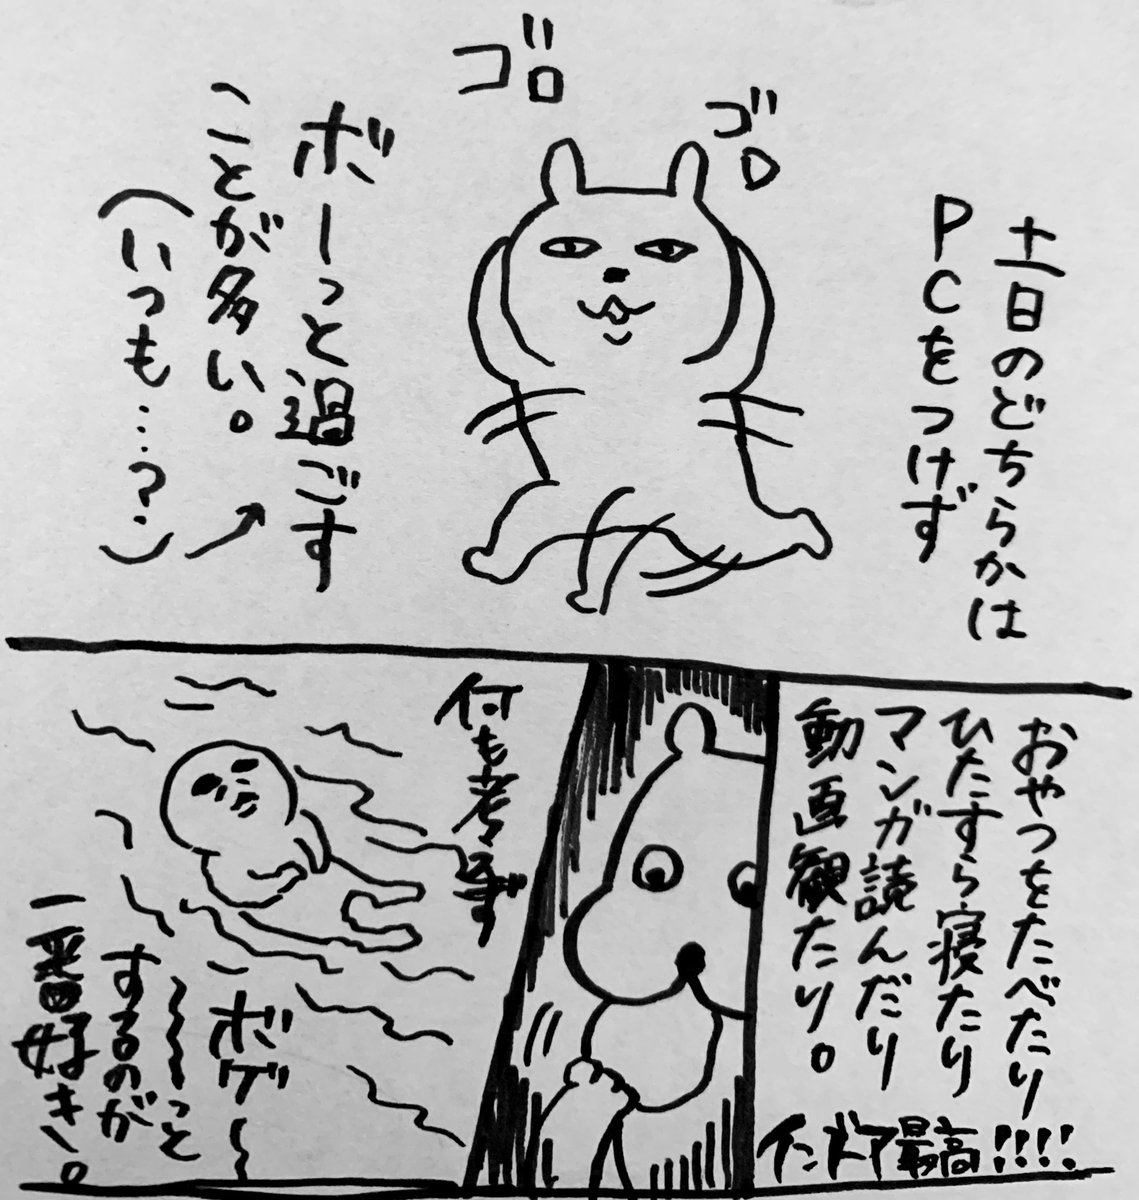 土日のどちらかは
PCをつけず
ゴロ
ゴロ
ボーっと過ごす
ことが多い。
(いつも…?)
おやつをたべたり
ひたすら寝たり
マンガ読んだり
動画観たり。
インドア最高!!!!
何も考えず
ボゲ〜
〜〜〜っと
するのが
一番好き。